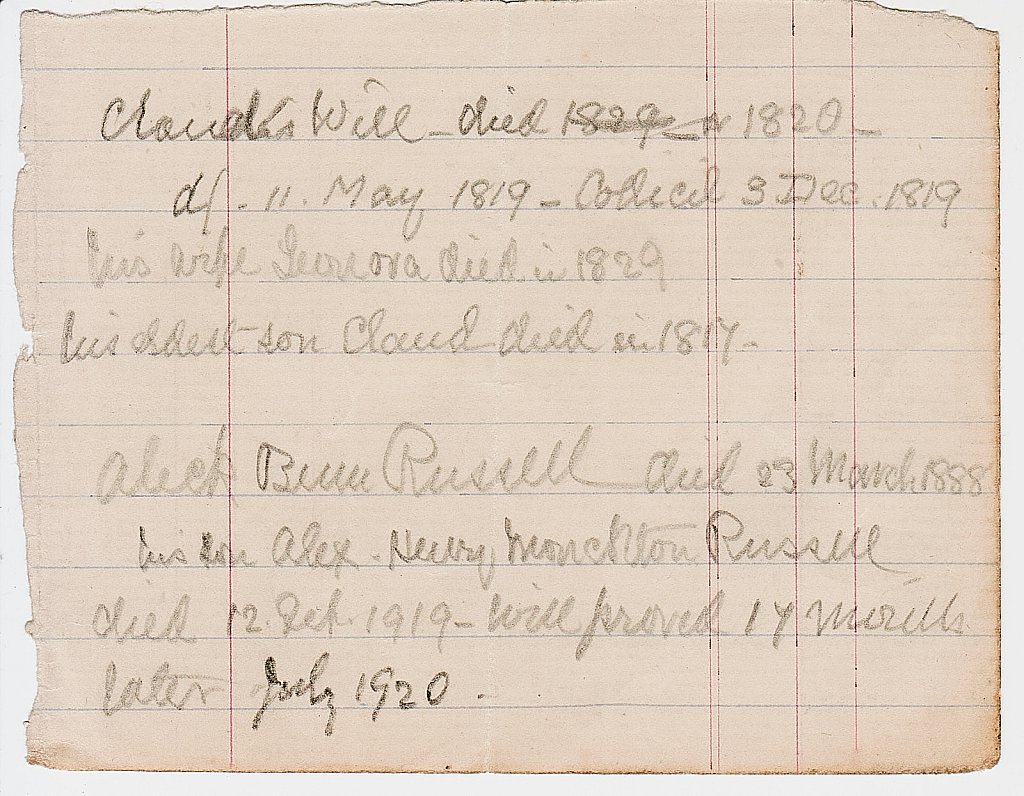 Claud's Will - died 1829 or 1820 -
of - 11. May 1819 - Codicil 3 Dec. 1819
his wife Leonora died in 1829
his eldest son Claud died in 1817 -
Alex Russell died 23 March 1888
his son Alex. Henry Monckton Russell
died 12. Sep. 1919 - Will proved 17 months
later July 1920 -